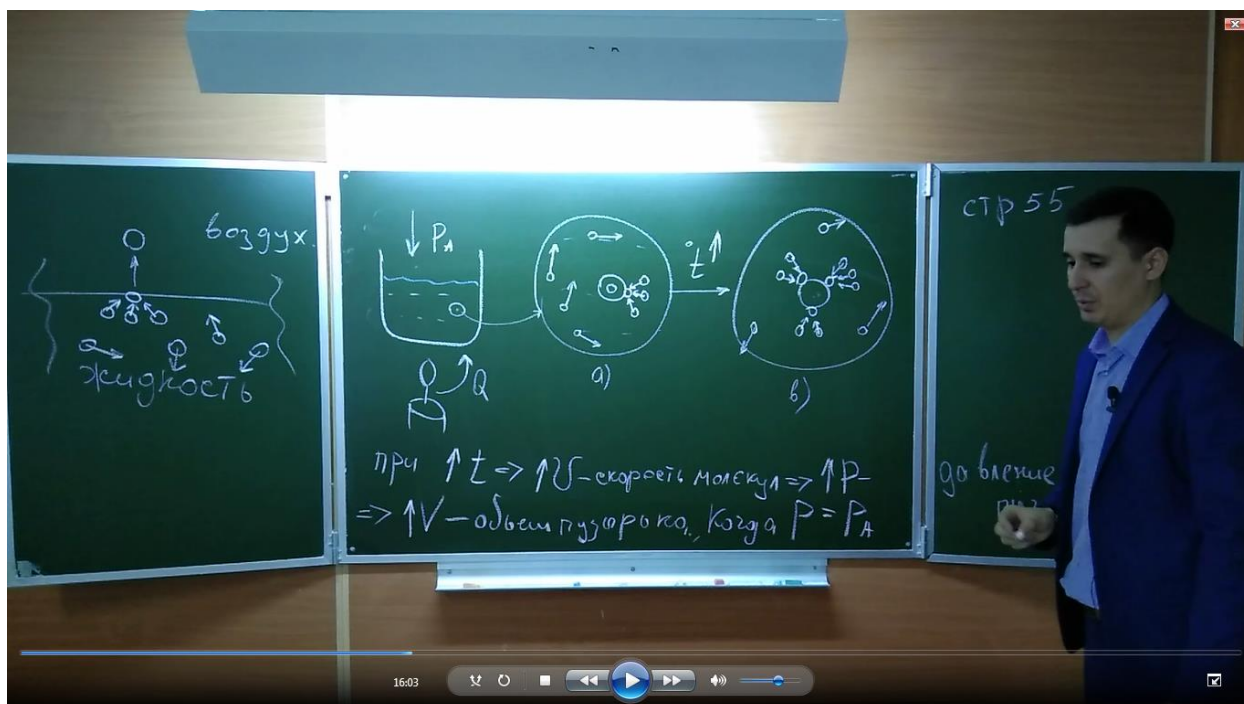 воздух.
жидкость
P_A
Q
t° ↑
а)
в)
при ↑ t => ↑ V - скорость молекул => ↑ P -
=> ↑ V - объем пузырько. Когда P = P_A
стр 55
давление
16:03